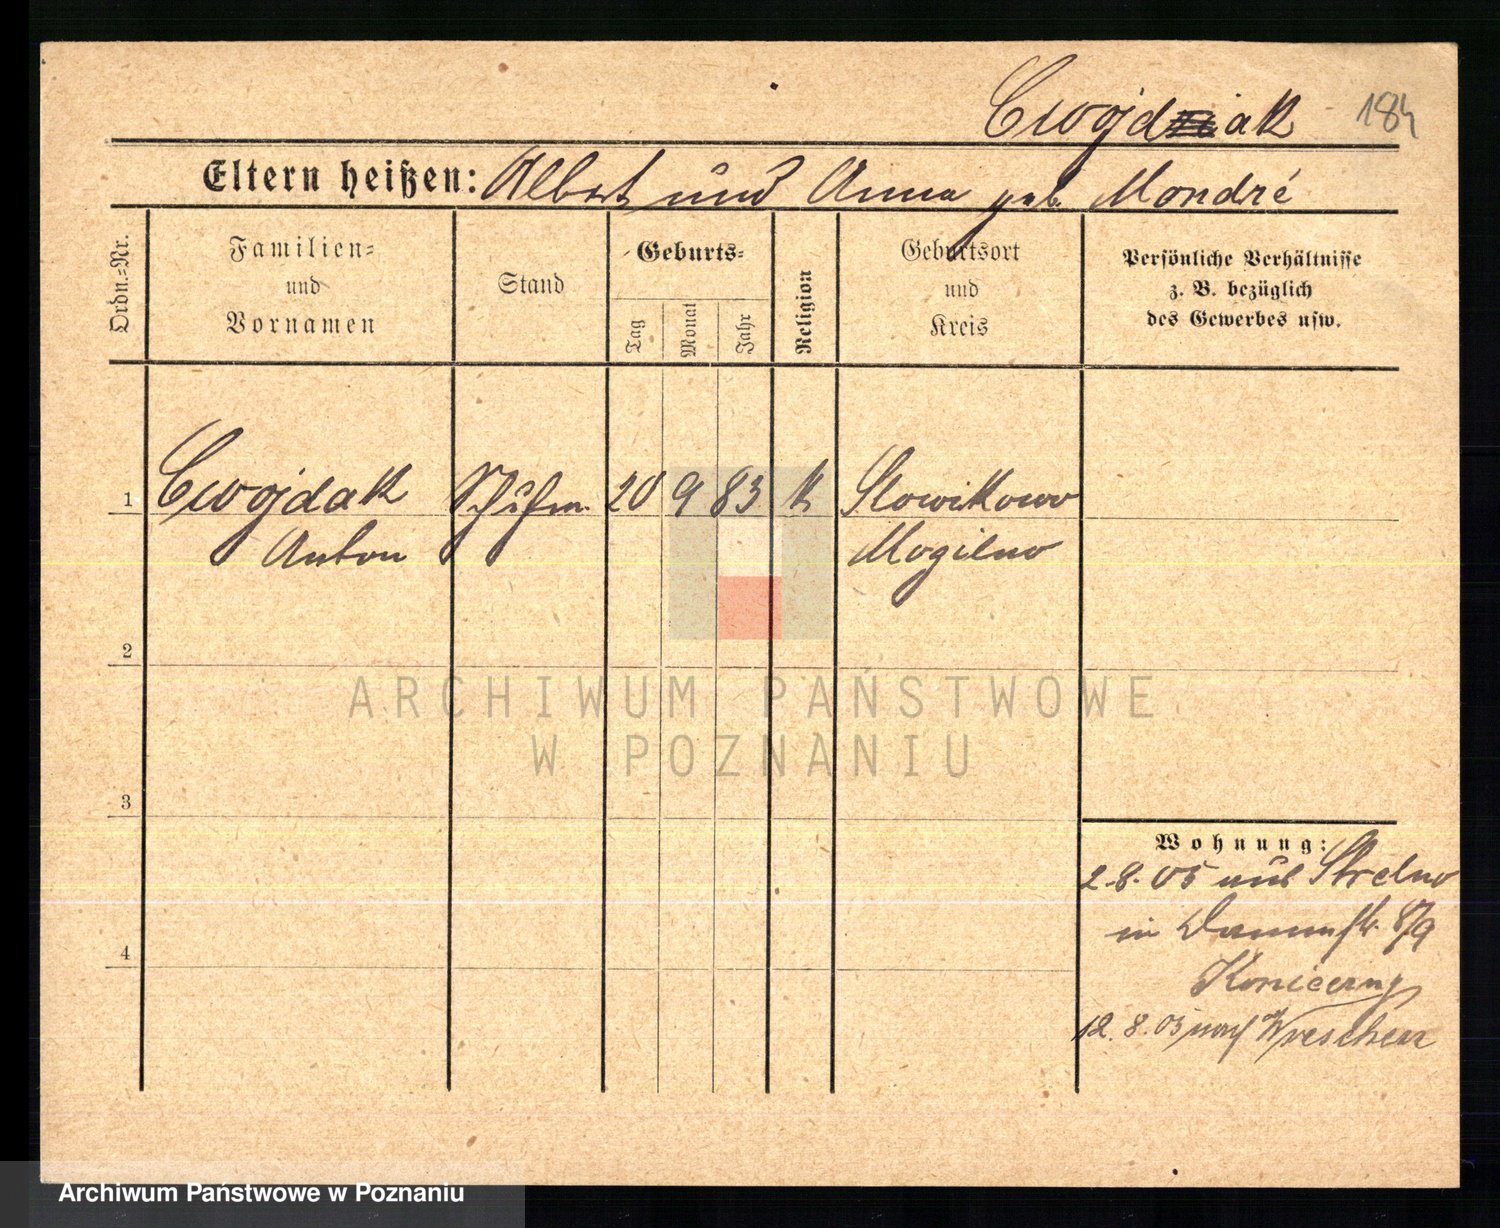 Cwojdziak 184
Eltern heißen: Albert und Anna geb. Mondré
Ordn.-Nr.
Familien-
und
Vornamen
Stand
Geburts-
Tag
Monat
Jahr
Religion
Geburtsort
und
Kreis
Persönliche Verhältnisse
z. B. bezüglich
des Gewerbes usw.
1 Cwojdak Schuhm. 20 9 83 k Slowikowo
Anton Mogilno
2
ARCHIWUM PAŃSTWOWE
W POZNANIU
3
Wohnung:
2.8.05 aus Strelno
in Dammstr. 8/9
4
12.8.05 nach Wreschen
Archiwum Państwowe w Poznaniu